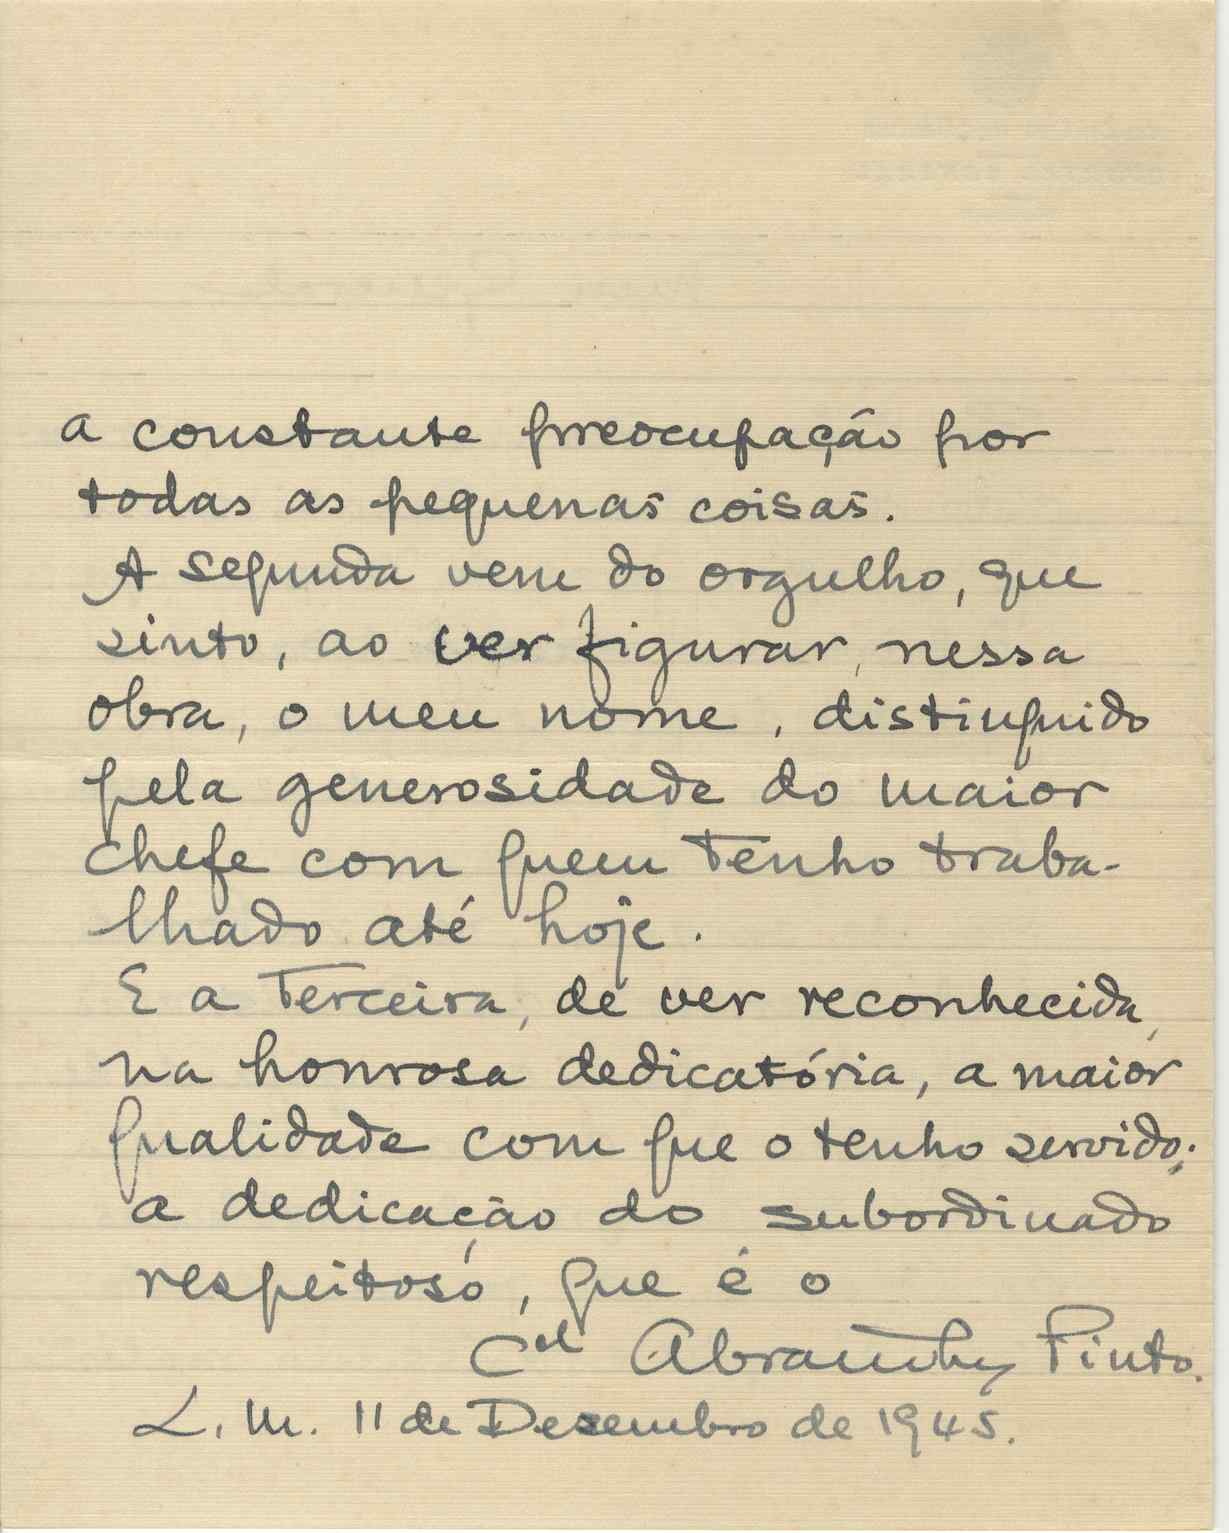 a constante preocupação por
todas as pequenas coisas.
A segunda vem do orgulho, que
sinto, ao ver figurar, nessa
obra, o meu nome, distinguido
pela generosidade do maior
chefe com quem tenho traba-
lhado até hoje.
E a Terceira, de ver reconhecida,
na honrosa dedicatória, a maior
qualidade com que o tenho servido;
a dedicação do subordinado
respeitoso, que é o
Cel Abranches Pinto.
L. M. 11 de Desembro de 1945.